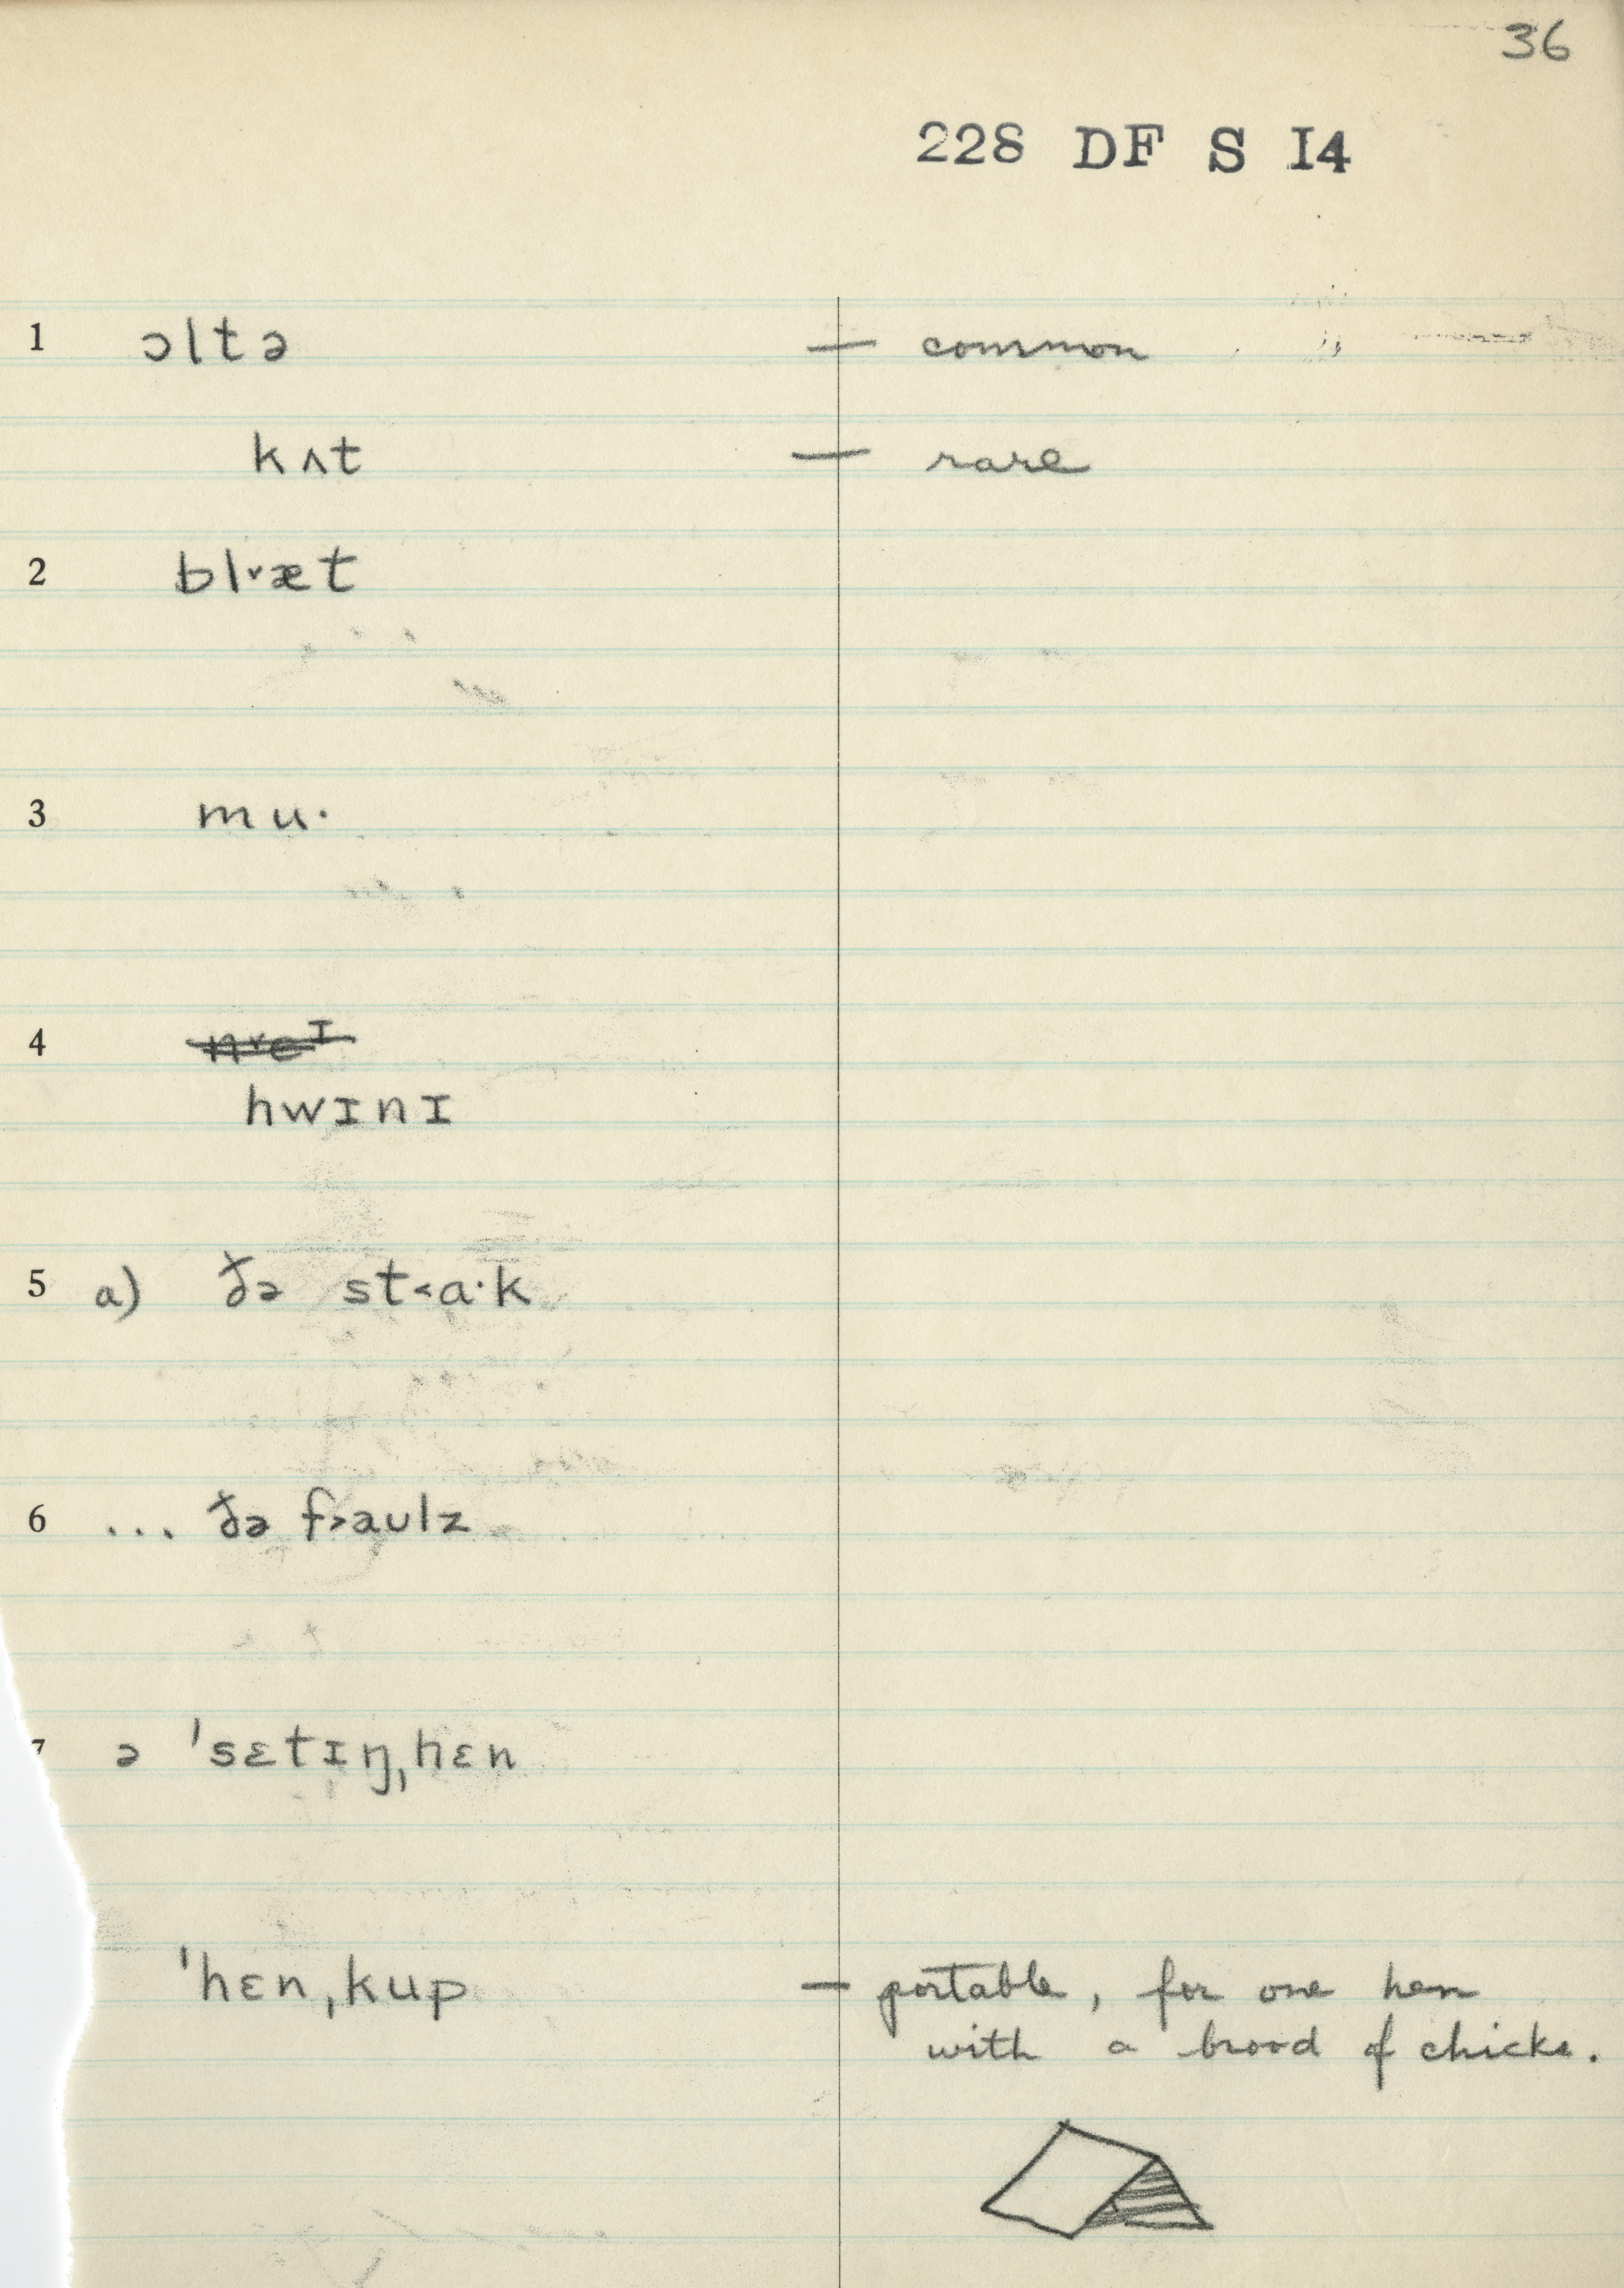 36
228 DF S I4
1 ɔltə — common
kʌt — rare
2 bl˅æt
3 mu·
4 n˅eᴵ
hwɪnɪ
5 a) ðə st˂a·k
6 ... ðə f˃aulz
7 ə ˈsɛtɪŋˌhɛn
ˈhɛnˌkup — portable, for one hen
with a brood of chicks.